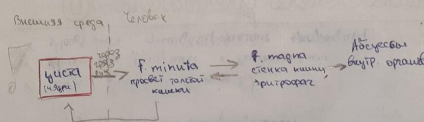 Внешняя среда Человек
через
циста
(4 ядра)
f. minuta
просвет толстой
кишки
f. magna
стенка кишки,
эритрофаг
Абсцессы
внутр. органов